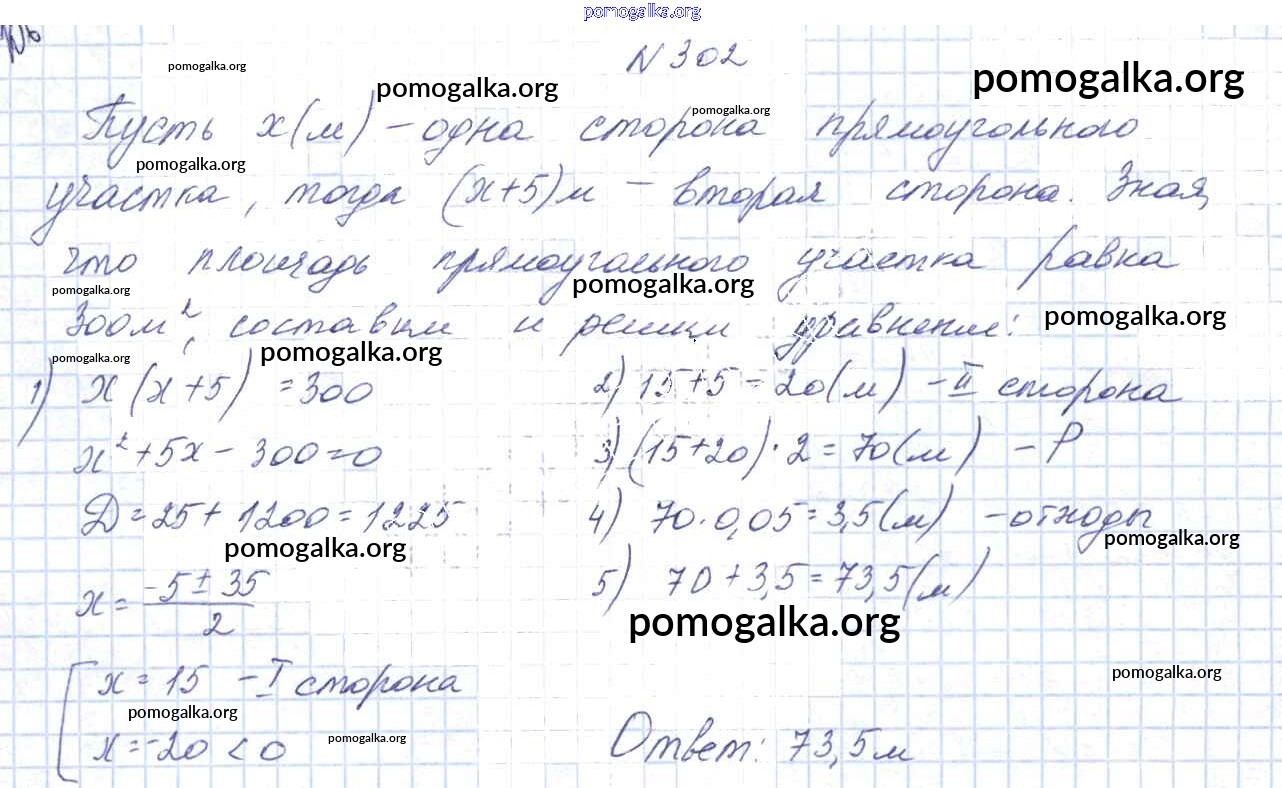 pomogalka.org
№ 302
pomogalka.org
pomogalka.org
pomogalka.org
pomogalka.org
Пусть x(м) – одна сторона прямоугольного
pomogalka.org
участка, тогда (x+5)м – вторая сторона. Зная,
что площадь прямоугольного участка равна
pomogalka.org
pomogalka.org
300м², составим и решим уравнение:
pomogalka.org
pomogalka.org
pomogalka.org
1) x(x+5) = 300
x² + 5x – 300 = 0
Д = 25 + 1200 = 1225
pomogalka.org
x = (-5 ± 35)/2
x = 15 – I сторона
pomogalka.org
x = -20 < 0
pomogalka.org
2) 15 + 5 = 20(м) – II сторона
3) (15+20)·2 = 70(м) – P
4) 70·0,05 = 3,5(м) – отходы
pomogalka.org
5) 70 + 3,5 = 73,5(м)
pomogalka.org
pomogalka.org
Ответ: 73,5м